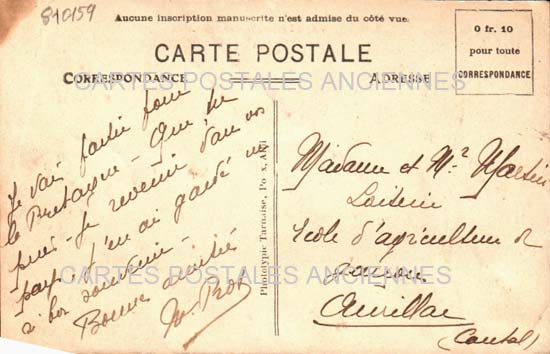 810159
Aucune inscription manuscrite n'est admise du côté vue.
CARTE POSTALE
CORRESPONDANCE
ADRESSE
0 fr. 10
pour toute
CORRESPONDANCE
CARTES POSTALES ANCIENNES
Je vais partir pour
la Bretagne - Que ne
puis-je revenir dans vos
pays j'en ai gardé un
si bon souvenir -
Bonne amitié
Phototypie Tarnaise, Poux, Albi
Madame et Mr
École d'agriculture
Aurillac
(Cantal)
CARTES POSTALES ANCIENNES